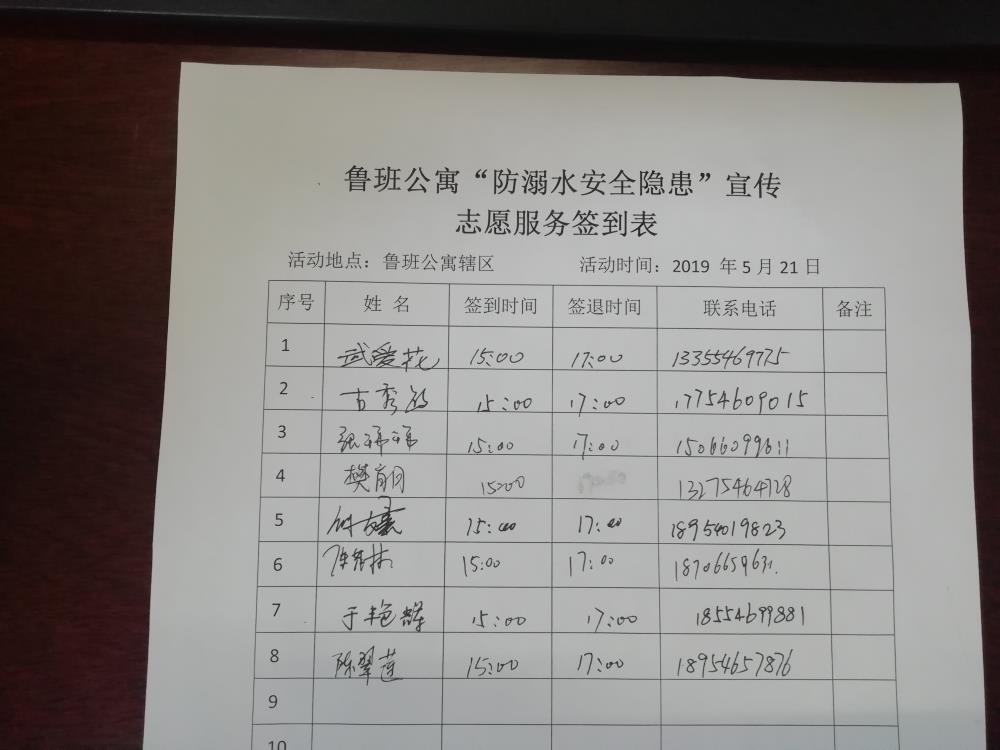 鲁班公寓“防溺水安全隐患”宣传
志愿服务签到表
活动地点：鲁班公寓辖区 活动时间：2019 年 5 月 21 日
序号 姓 名 签到时间 签退时间 联系电话 备注
1 武爱花 15:00 17:00 13355469775
2 15:00 17:00 17754609015
3 15:00 17:00 15066099611
4 15:00 13275464728
5 15:00 17:00 18954019823
6 15:00 17:00 18706659631.
7 于艳辉 15:00 17:00 18554699881
8 陈翠莲 15:00 17:00 18954657876
9
10